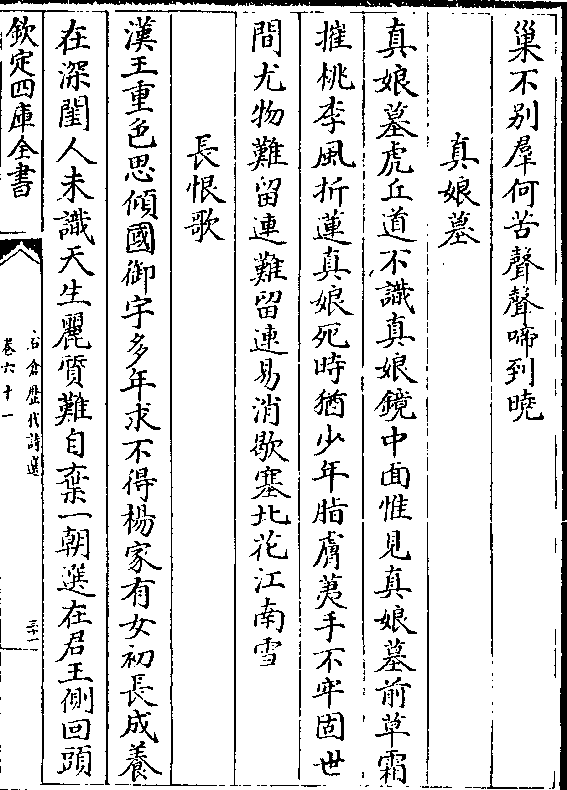 巢不别羣何苦聲聲啼到曉
真娘墓
真娘墓虎丘道不識真娘鏡中面惟見真娘墓前草霜
摧桃李風折蓮真娘死時猶少年脂膚荑手不牢固世
間尤物難留連難留連易消歇塞北花江南雪
長恨歌
漢王重色思傾國御宇多年求不得楊家有女初長成養
在深閨人未識天生麗質難自棄一朝選在君王側回頭
欽定四庫全書
石倉歷代詩選
卷六十一
三十一